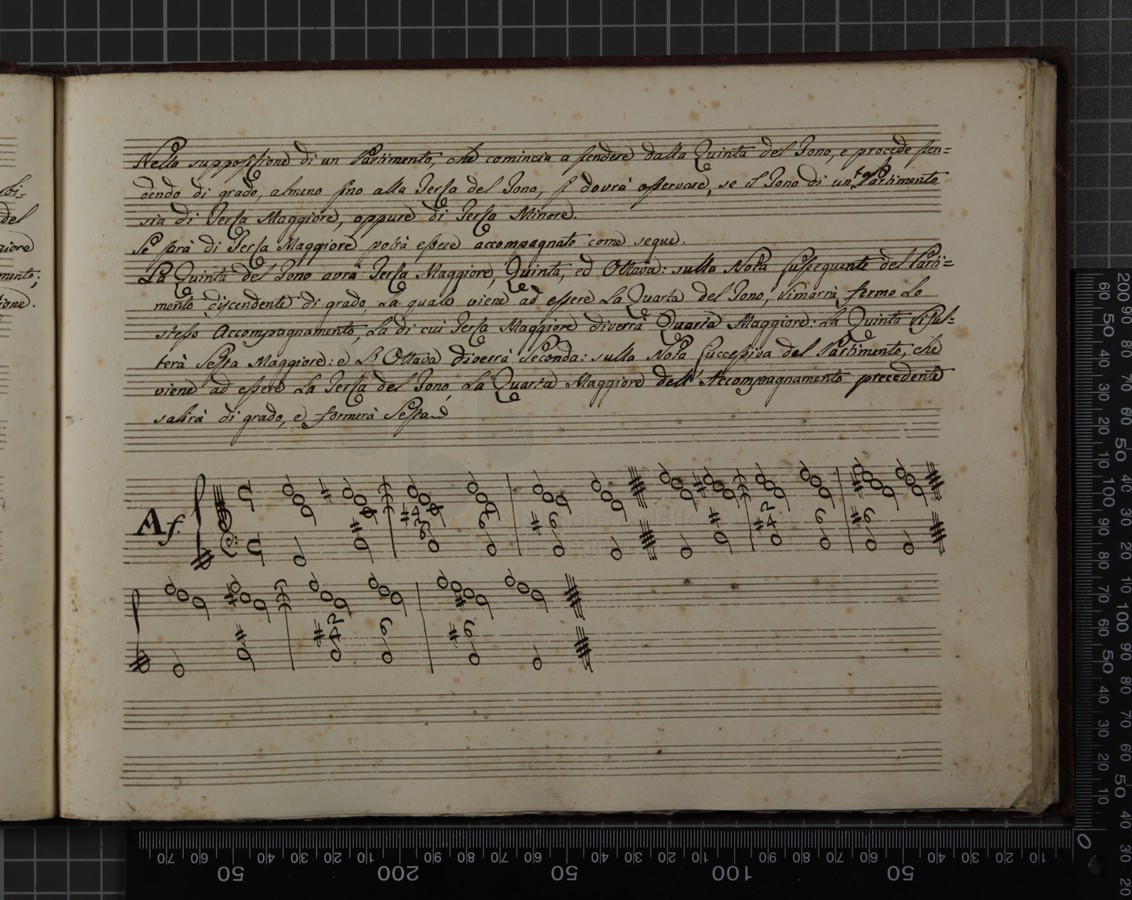 Nella supposisione di un Partimento, che comincia a scendere dalla Quinta del Tono, e procede scen=
dendo di grado, almeno fino alla Tersa del Tono, si dovrà osservare, se il Tono di un tal Partimento
sia di Tersa Maggiore, oppure di Tersa Minore.
Se sarà di Tersa Maggiore potrà essere accompagnato come segue.
La Quinta del Tono avrà Tersa Maggiore, Quinta, ed Ottava: sulla Nota susseguente del Parti=
mento discendente di grado, la quale viene ad essere la Quarta del Tono, rimarrà fermo lo
stesso Accompagnamento, la di cui Tersa Maggiore diverrà Quarta Maggiore: la Quinta risul=
terà Sesta Maggiore: e l'Ottava diverrà seconda: sulla Nota successiva del Partimento, che
viene ad essere la Tersa del Tono, la Quarta Maggiore dell'Accompagnamento precedente
salirà di grado, e formerà Sesta